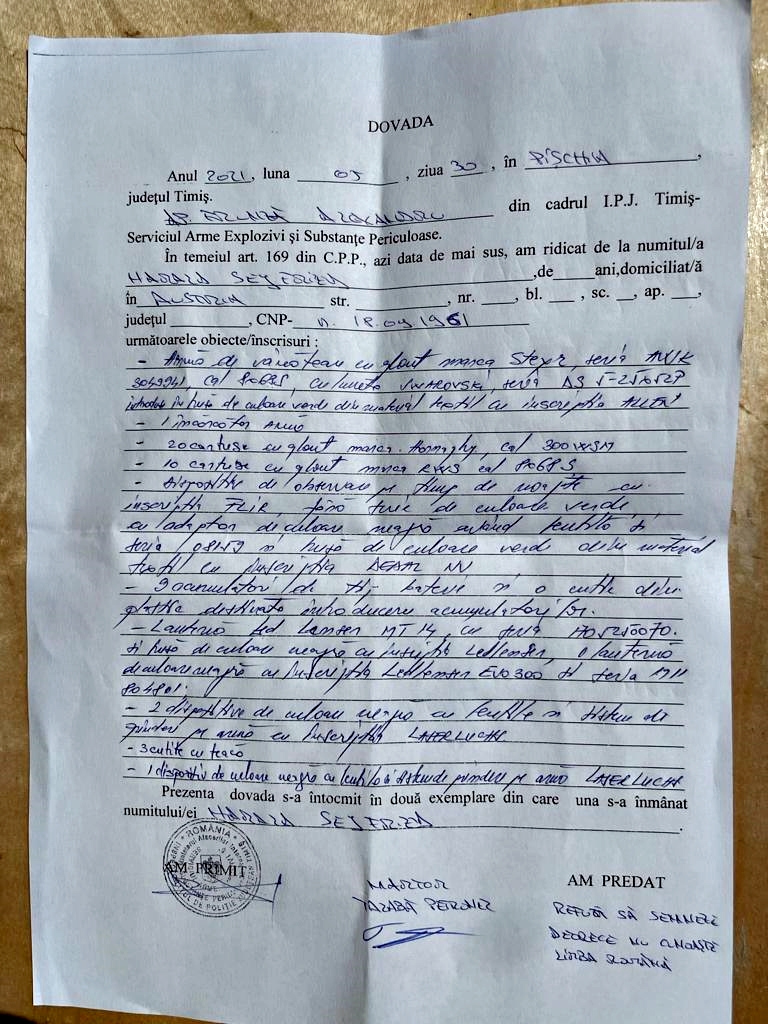 DOVADA
Anul 2021, luna 05, ziua 30, în PIȘCHIA,
județul Timiș.
ALEXANDRU din cadrul I.P.J. Timiș-
Serviciul Arme Explozivi și Substanțe Periculoase.
În temeiul art. 169 din C.P.P., azi data de mai sus, am ridicat de la numitul/a
HARALD ,de ani,domiciliat/ă
în AUSTRIA str. , nr. , bl. , sc. , ap. ,
județul , CNP- n. 18.09.1961
următoarele obiecte/înscrisuri :
- Armă de vânătoare cu glonț marca Steyr, seria
3049941, cal 8x68S, cu lunetă SWAROVSKI, seria
introdusă în husă de culoare verde din material textil cu inscripția
- 1 încărcător armă
- 20 cartușe cu glonț marca , cal 300 WSM
- 10 cartușe cu glonț marca RWS cal 8x68 S
- Dispozitiv de observare pe timp de noapte cu
inscripția FLIR, fără serie de culoare verde,
cu adaptor de culoare neagră având lentilă și
seria 08159 și husă de culoare verde din material
textil cu inscripția NV
- 9 acumulatori de tip baterie și o cutie din
plastic destinată introducere acumulatorilor.
- Lanternă Led Lenser MT14, cu seria
și husă de culoare neagră cu inscripția Ledlenser, o lanternă
de culoare neagră cu inscripția Ledlenser EVO300 și seria
804801;
- 2 dispozitive de culoare neagră cu lentile și sistem de
prindere pe armă cu inscripția LASERLUCHS
- 3 cuțite cu teacă
- 1 dispozitiv de culoare neagră cu lentilă și sistem de prindere pe armă LASERLUCHS
Prezenta dovada s-a întocmit în două exemplare din care una s-a înmânat
numitului/ei HARALD .
ROMÂNIA
AM PRIMIT
MARTOR
AM PREDAT
REFUZĂ SĂ SEMNEZE
DEOARECE NU CUNOAȘTE
LIMBA ROMÂNĂ